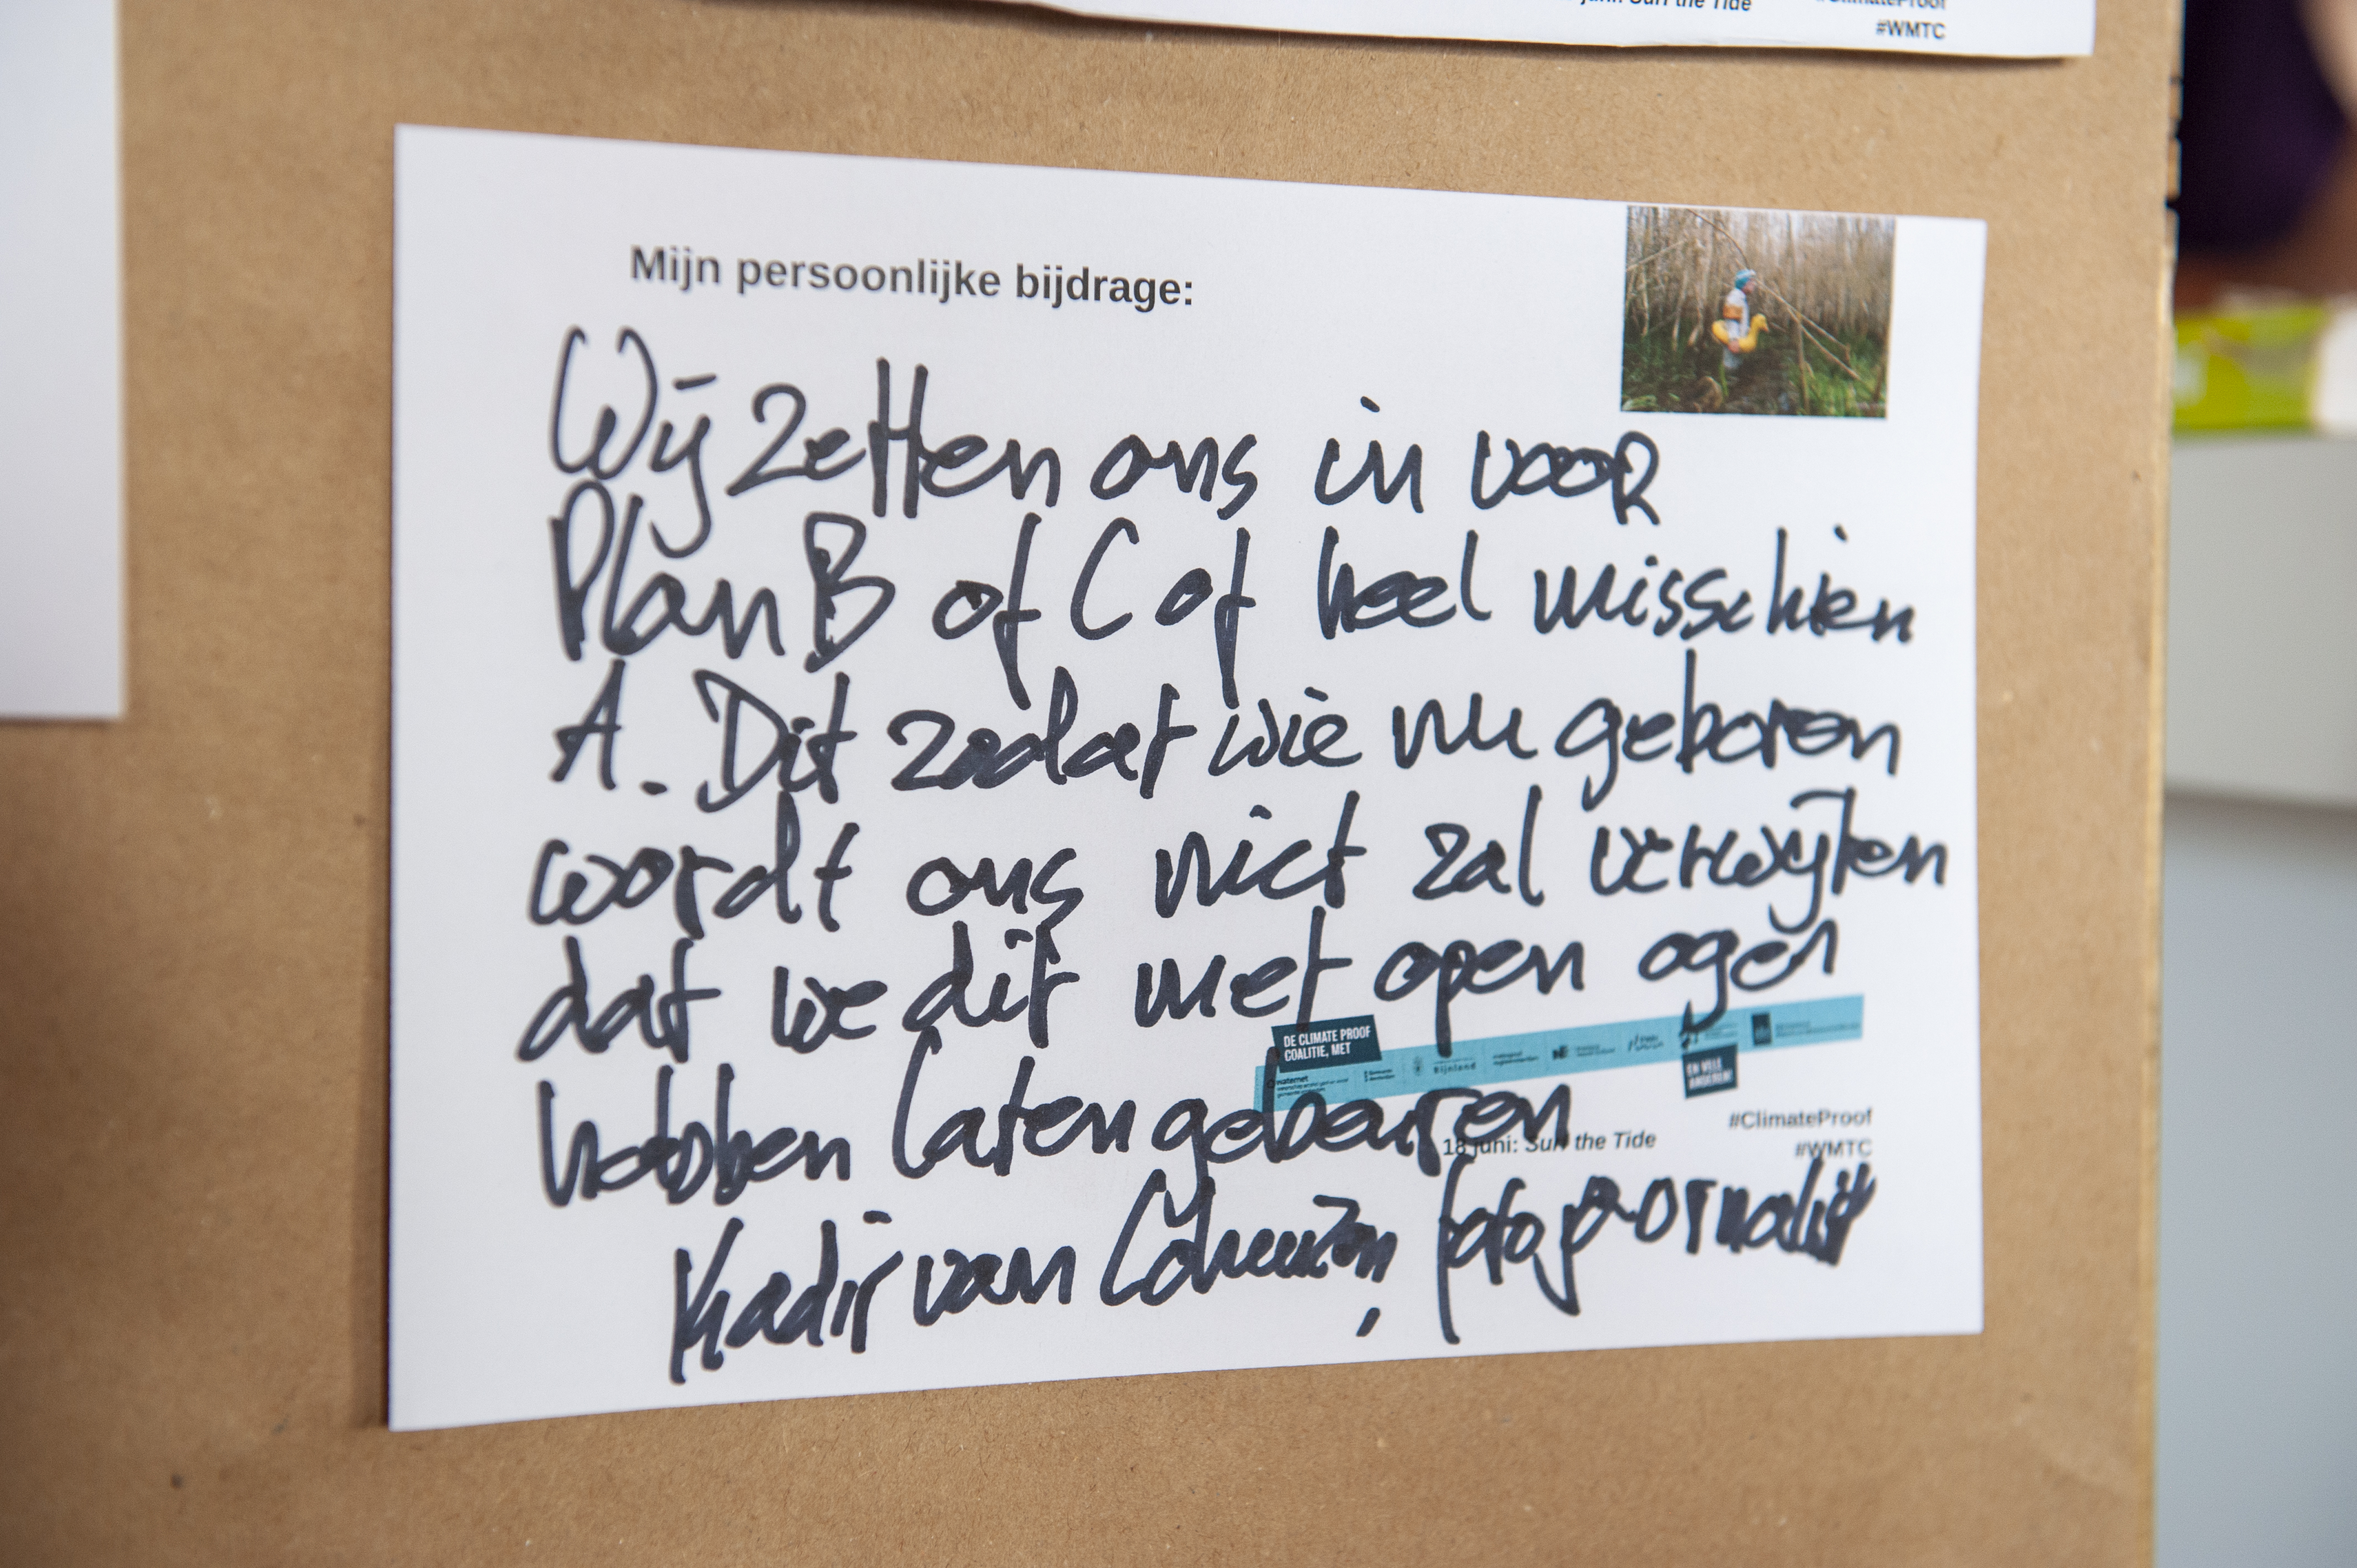 #ClimateProof
Surf the Tide
#WMTC
Mijn persoonlijke bijdrage:
Wij zetten ons in voor
Plan B of C of heel misschien
A. Dit zodat wie nu geboren
wordt ons niet zal verwijten
dat we dit met open ogen
DE CLIMATE PROOF
COALITIE, MET
waternet
Rijnland
EN VELE
ANDEREN!
hebben laten gebeuren
#ClimateProof
18 juni: Surf the Tide
#WMTC
Kadir van Lohuizen, fotojournalist